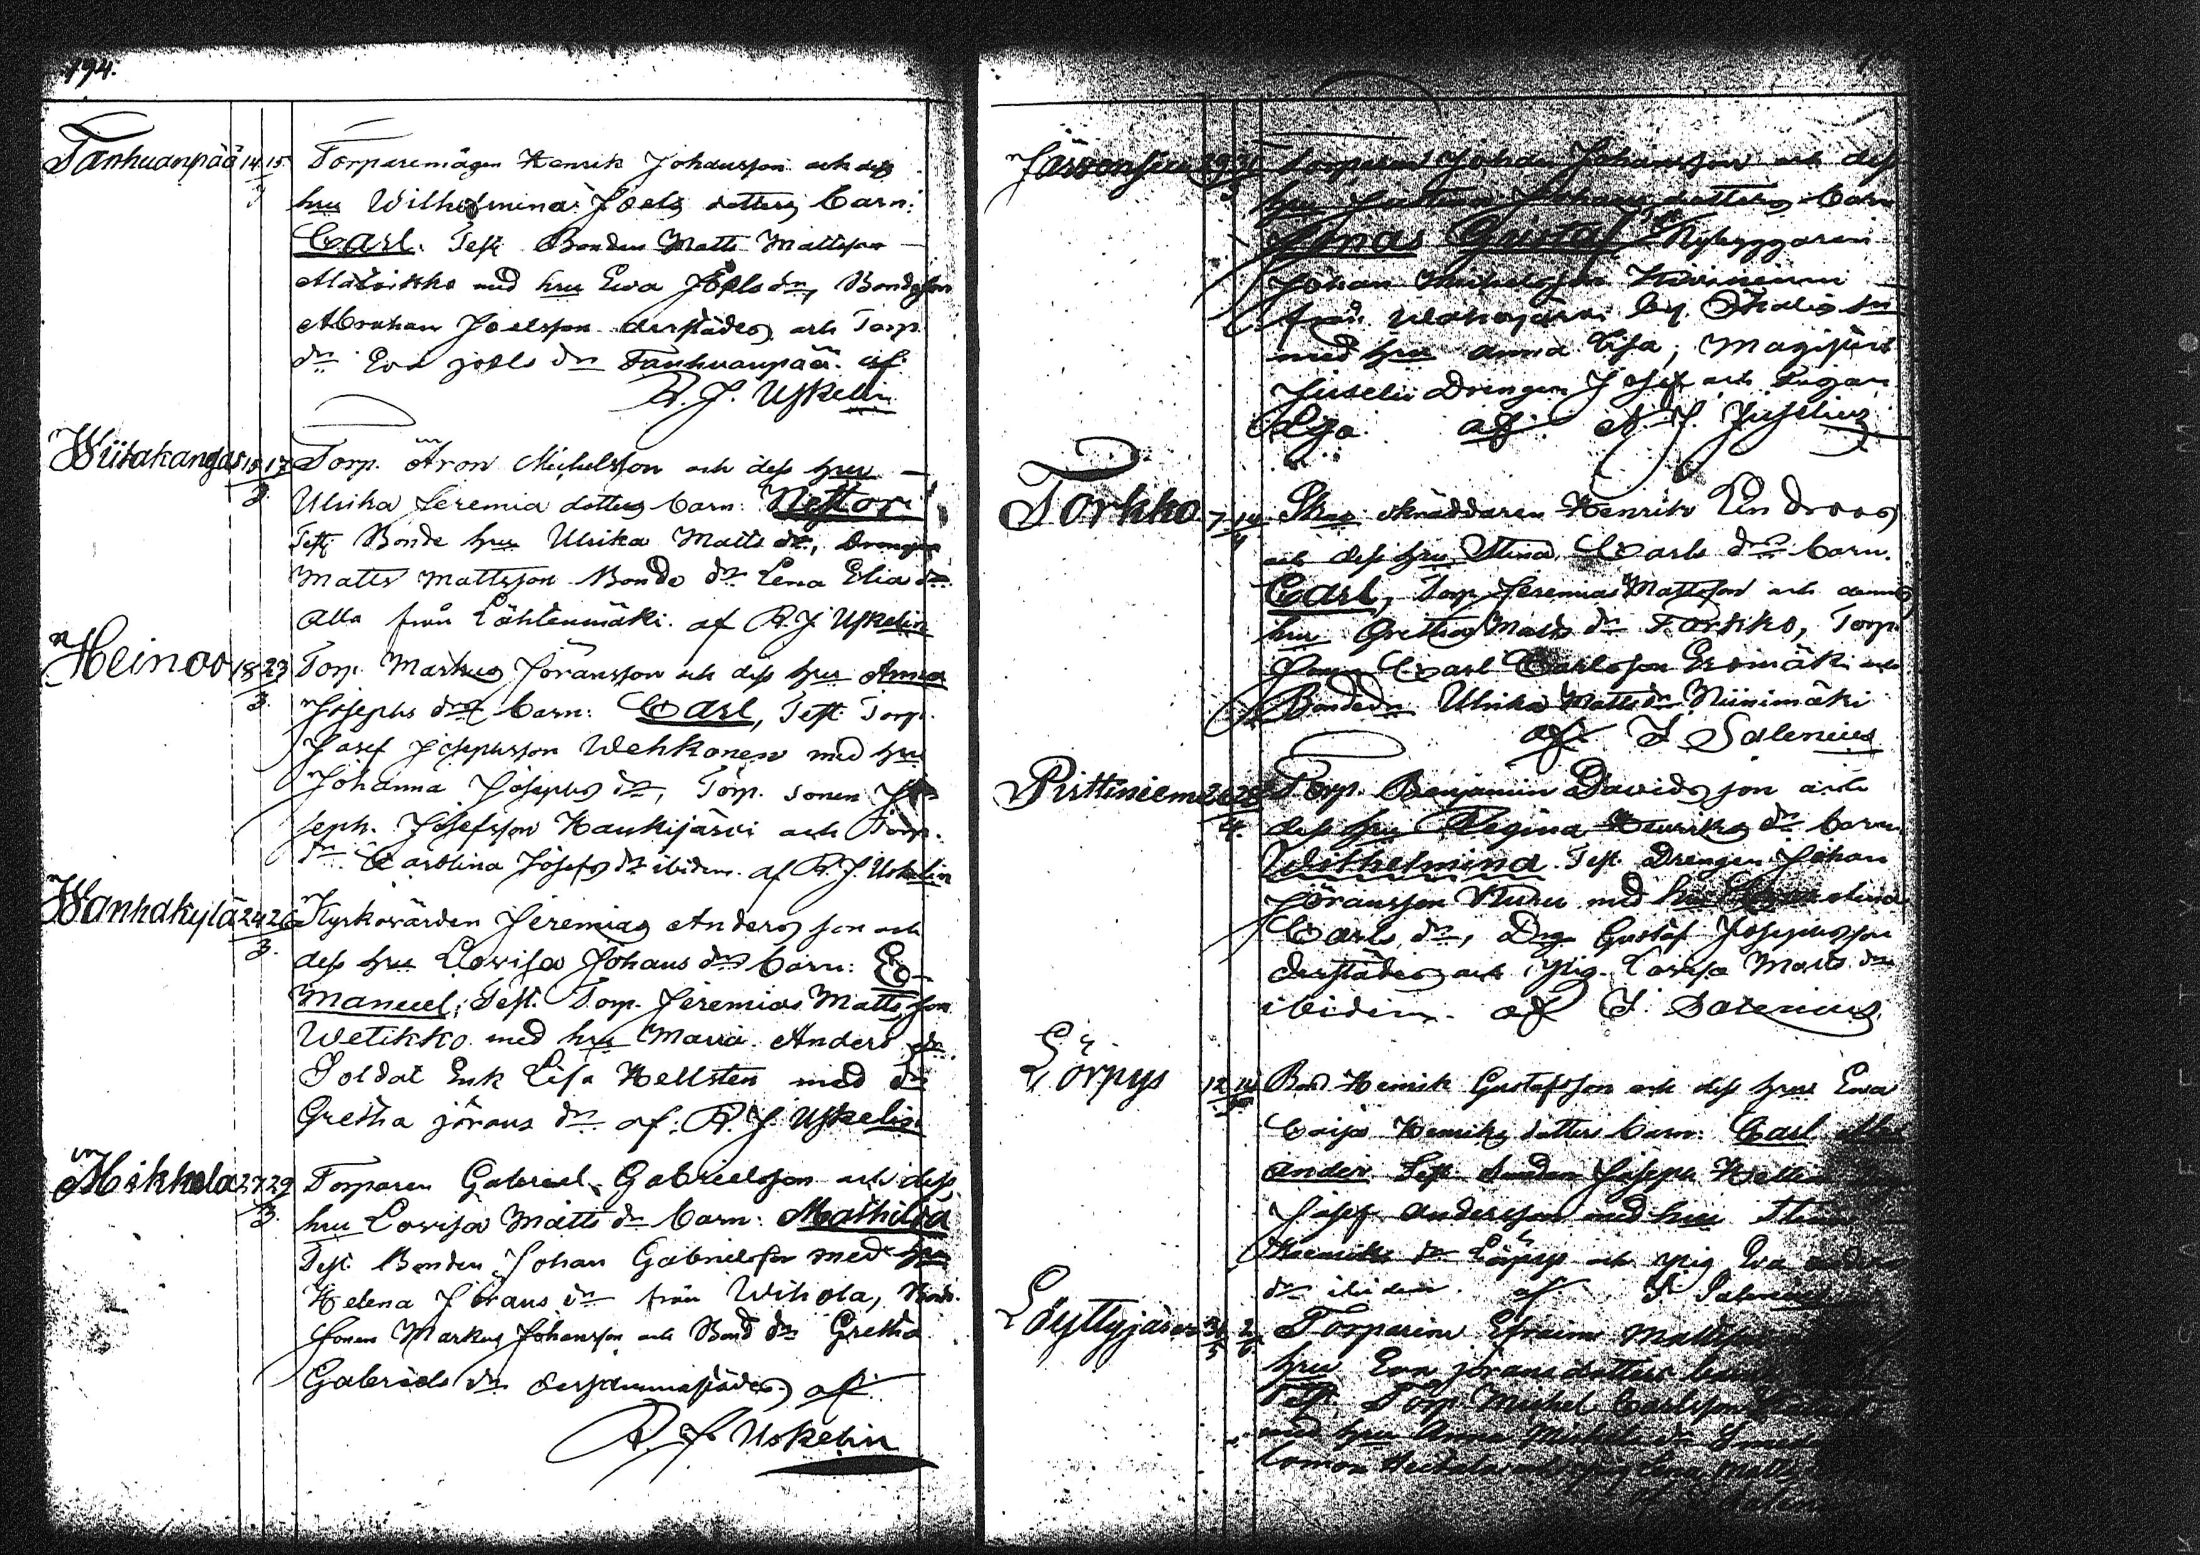 194.
Tanhuanpää 14 15 Torparemågen Henrik Johansson och dess
3 hru Wilhelmina Joels dotters barn:
Carl. Test. Bonden Matts Mattsson
med hru Ewa Joels dr, Bondeson
Abraham Joelsson derstädes och Torp.
dr Eva Joels dr Tanhuanpää. af
R. J. Uskelin
Wiitakangas 15 17 Torp. Aron Michelsson och dess hru
3 Ulrika Jeremia dotters barn: Nestor
Test. Bonde hru Ulrika Matts dr, Drengen
Matts Mattsson Bonde dr Lena Elia dr
Alla från Lähtenmäki. af R. J. Uskelin
Heinoo 18 23 Torp. Markus Jöransson och dess hru Anna
3. Josephs drs barn: Carl, Test. Torp.
Josef Josephsson Wehkonen med hru
Johanna Josephs dr, Torp. sonen Jo
seph Josefsson Haukijärvi och Torp.
dr Carolina Josefs dr ibidem. af R. J. Uskelin
Wanhakylä 24 26 Kyrkovärden Jeremias Andersson och
3. dess hru Lovisa Johans drs barn: E-
manuel; Test. Torp. Jeremias Mattsson
Wetikko med hru Maria Anders dr.
Soldat Enk. Lisa Hellsten med dr
Gretha Jörans dr af. R. J. Uskelin
Mikkola 27 29 Torparen Gabriel Gabrielsson och dess
3. hru Lovisa Matts dr barn: Mathilda
Test. Bonden Johan Gabrielsson med hru
Helena Jörans dr från Wihola, Bond.
sonen Markus Johansson och Bond dr Gretha
Gabriels dr dersammastädes af
R. J. Uskelin
Torparen Johan Johansson och dess
hru Justina Johans dotters barn
Jonas Gustaf Nybyggaren
Johan
från by
med hru Anna Caisa,
Drengen Josef och Pigan
af
Torkko 7 Skräddaren Henrik Lindroos
4 och dess hru Stina Carls drs barn.
Carl, Torp. Jeremias Mattsson och dennes
hru Gretha Matts dr Torkko, Torp.
Carl Carlsson Eromäki och
Bonde dr Ulrika Matts dr Niinimäki
af J Salenius
Torp. Benjamin Davidsson och
4. dess hru Regina Henriks dr barn
Wilhelmina. Test. Drengen Johan
Jöransson med hru Stina
Carls dr, Drg Gustaf Josephsson
derstädes och pig. Lovisa Matts dr
ibidem. af J. Salenius
Lörpys 12 14 Bond. Henrik Gustafsson och dess hru Ewa
Caisa Henriks dotters barn: Carl Alex
ander Test. Joseph
Josef Andersson med hru Stina
Henriks dr Lörpys och pig Eva
dr ibidem. af J Salenius
31 2 Torparen Efraim Mattsson
5 6 hru Eva Jörans dotters barn
Test. Torp. Michel Carlsson
med hru Anna Michels dr
och pig Lena Matts